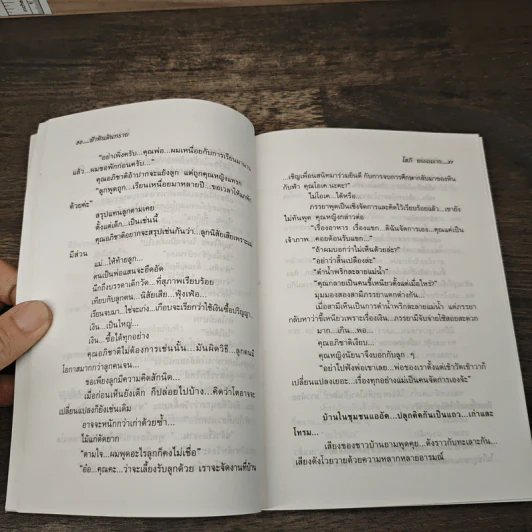 ๖๐....ฟ้าหินดินทราย
"อย่าเพิ่งครับ...คุณพ่อ...ผมเหนื่อยกับการเรียนมามาก
แล้ว...ผมขอพักก่อนครับ..."
คุณอภิชาติอ้าปากจะแย้งลูก แต่ถูกคุณหญิงแทรก
"ลูกพูดถูก...เรียนเหนื่อยมาหลายปี...ขอเวลาให้
ด้วยค่ะ"
สรุปแทนลูกตามเคย
ตั้งแต่เด็ก...เป็นเช่นนี้
คุณอภิชาติอยากจะสรุปเช่นกันว่า...ลูกนิสัยเสียเพราะแม่
มีส่วน
แม่...ให้ท้ายลูก...
ตนเป็นพ่อแสนจะอึดอัด
นึกถึงบรรดาเด็กวัด...ที่สุภาพเรียบร้อย
เทียบกับลูกตน...นิสัยเสีย...ฟุ้งเฟ้อ...
เรียนจบมา...ใช่จะเก่ง...เกือบจะเรียกว่าใช้เงินซื้อปริญญา
เงิน...เป็นใหญ่...
เงิน...ซื้อได้ทุกอย่าง
คุณอภิชาติไม่ต้องการเช่นนั้น...มันผิดวิธี...ลูกคนมี
โอกาสมากกว่าลูกคนจน...
ขอเพียงลูกมีความคิดสักนิด...
เมื่อก่อนเห็นยังเด็ก ก็ปล่อยไปบ้าง...คิดว่าโตอาจจะ
เปลี่ยนแปลงก็ยังเช่นเดิม
อาจจะหนักกว่าเก่าด้วยซ้ำ...
ไม้แก่ดัดยาก
"ตามใจ...ผมพูดอะไรลูกก็คงไม่เชื่อ"
"อ้อ...คุณคะ...ว่าจะเลี้ยงรับลูกด้วย เราจะจัดงานที่บ้าน
โสภี พรรณราย...๖๑
...เชิญเพื่อนสนิทมาร่วมยินดี กับการจบการศึกษากลับมาของหิน
กับฟ้า คุณโอเค นะคะ?"
ไม่โอเค...ได้หรือ...
ภรรยาพูดเป็นเชิงจัดการและคิดไว้เรียบร้อยแล้ว...เขายัง
ไม่ทันพูด คุณหญิงกล่าวต่อ
"เรื่องอาหาร เรื่องแขก...ดิฉันจัดการเอง...คุณแค่เป็น
เจ้าภาพ...คอยต้อนรับแขก..."
"ถ้าผมบอกว่าไม่เห็นด้วยล่ะ?"
"อย่าว่าสิ้นเปลืองล่ะ"
"ตำน้ำพริกละลายแม่น้ำ"
"คุณกลายเป็นคนขี้เหนียวตั้งแต่เมื่อไหร่?"
มุมมองสองสามีภรรยาแตกต่างกัน...
เมื่อสามีเห็นเป็นการตำน้ำพริกละลายแม่น้ำ แต่ภรรยา
กลับหาว่าขี้เหนียวเพราะเรื่องเงิน...ภรรยามีจับจ่ายใช้สอยสะดวก
มาก...เกิน...พอ...
คุณอภิชาติเงียบ...
คุณหญิงนัยนาจึงบอกกับลูก ๆ
"อย่าไปฟังพ่อเขาเลย...พ่อของเราตั้งแต่เข้าวัดเข้าวาก็
เปลี่ยนแปลงเยอะ...เรื่องทุกอย่างแม่เป็นคนจัดการเองจ้ะ"
บ้านในชุมชนแออัด...ปลูกติดกันเป็นแถว...เก่าและ
โทรม...
เสียงของชาวบ้านยามพูดคุย...ดังราวกับทะเลาะกัน...
เสียงดังโวยวายด้วยความหลากหลายอารมณ์